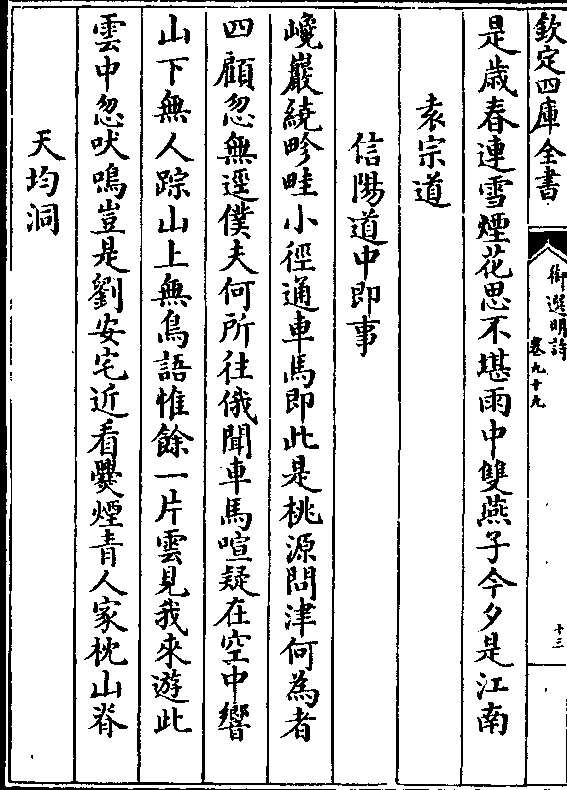 欽定四庫全書
御選明詩
卷九十九
十三
是歲春連雪煙花思不堪雨中雙燕子今夕是江南
袁宗道
信陽道中即事
巉巖繞畛畦小徑通車馬即此是桃源問津何為者
四顧忽無逕僕夫何所往俄聞車馬喧疑在空中響
山下無人踪山上無鳥語惟餘一片雲見我來遊此
雲中忽吠鳴豈是劉安宅近看爨煙青人家枕山脊
天均洞